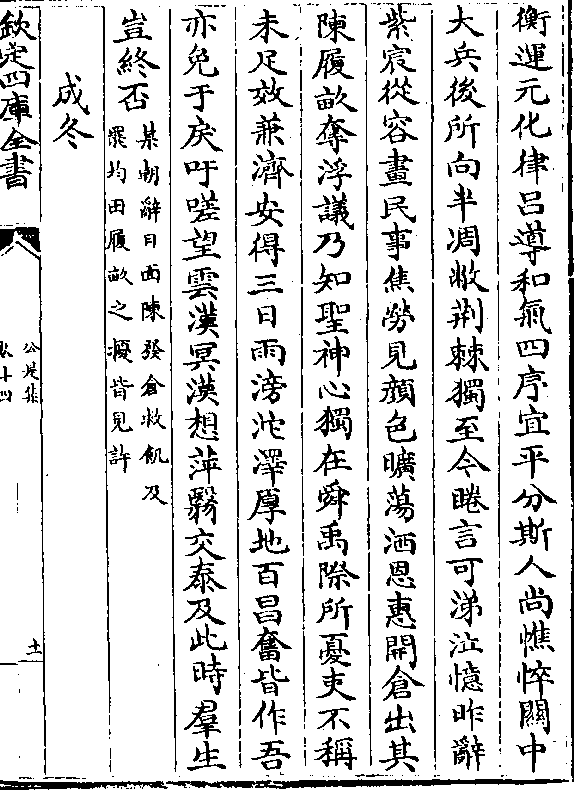 衡運元化律呂導和氣四序宜平分斯人尚憔悴關中
大兵後所向半凋敝荆棘獨至今睠言可涕泣憶昨辭
紫宸從容畫民事焦勞見顔色曠蕩洒恩惠開倉出其
陳履畝奪浮議乃知聖神心獨在舜禹際所憂吏不稱
未足效兼濟安得三日雨滂沱澤厚地百昌奮皆作吾
亦免于戾吁嗟望雲漢冥漠想蓱翳交泰及此時羣生
豈終否
某朝辭日面陳發倉救飢及
罷均田履畝之擾皆見許
成冬
欽定四庫全書
公是集